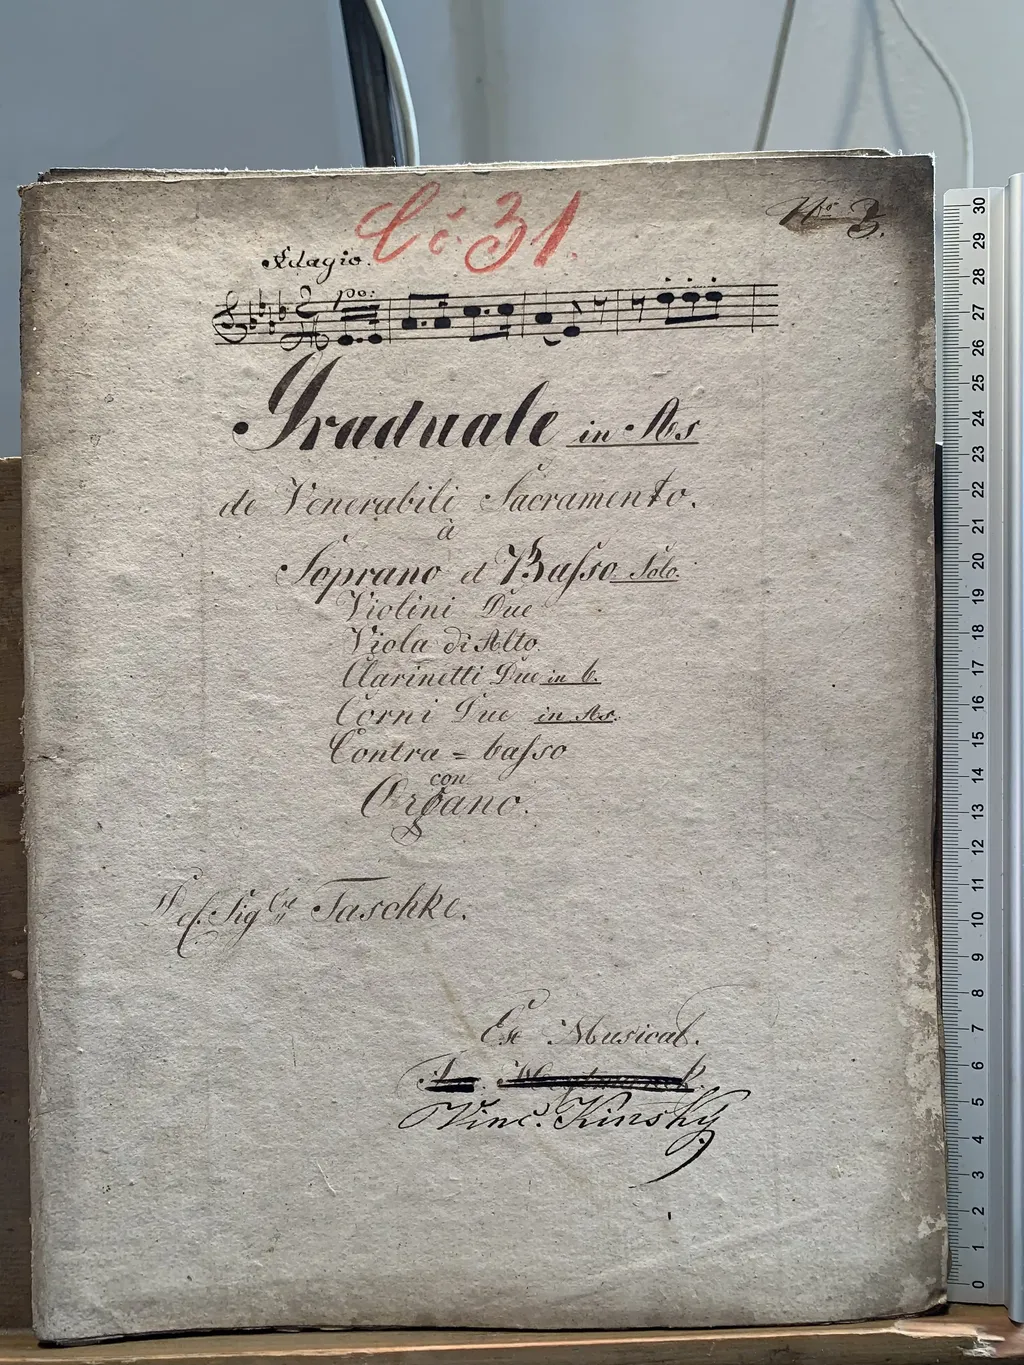 Čó. 31.
Nro 3.
Adagio.
po:
Graduale in As
de Venerabili Sacramento.
à
Soprano et Basso Solo.
Violini Due
Viola di Alto.
Clarinetti Due in b.
Corni Due in As.
Contra = basso
con
Organo.
Del Sigre Taschke.
Est Musical.
Vinc. Kinsky
30
29
28
27
26
25
24
23
22
21
20
19
18
17
16
15
14
13
12
11
10
9
8
7
6
5
4
3
2
1
0